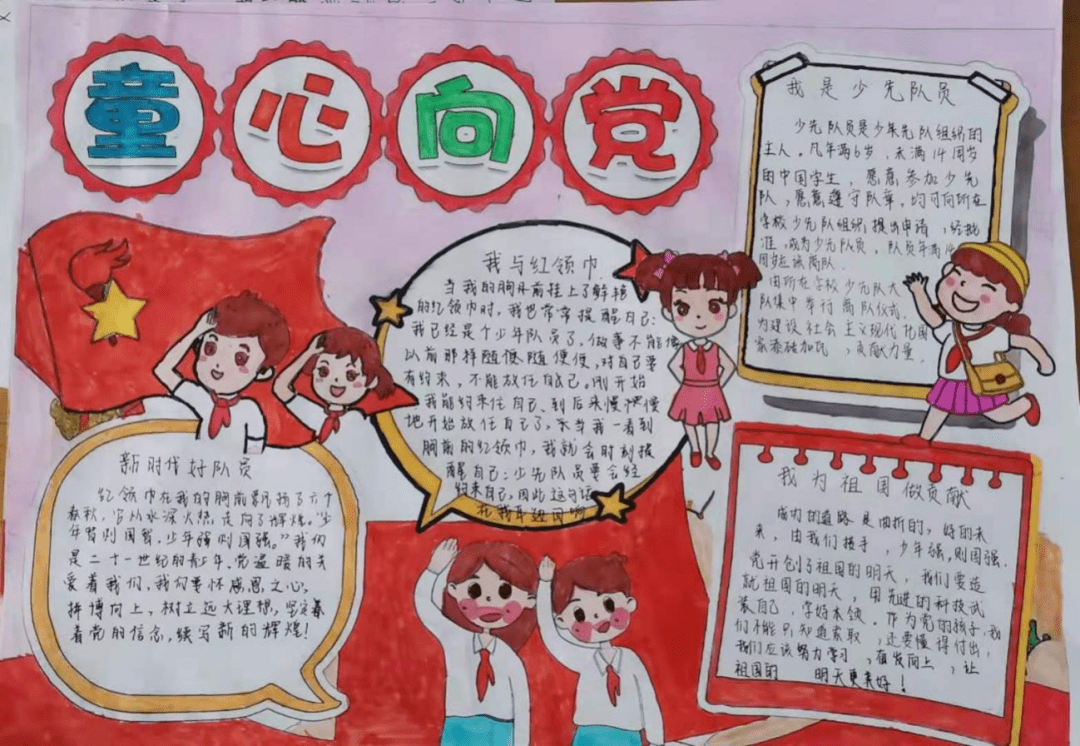 童心向党
我是少先队员
少先队员是少年先队组织的
主人。凡年满6岁，未满14周岁
的中国学生，愿意参加少先
队，愿意遵守队章，均可向所在
学校少先队组织提出申请，经批
准，成为少先队员。队员年满14
周岁应该离队.
由所在学校少先队大
队集中举行离队仪式.
为建设社会主义现代化国
家添砖加瓦，贡献力量.
我与红领巾
当我的胸前挂上了鲜艳
的红领巾时，我也常常提醒自己：
我已经是个少年队员了，做事不能像
以前那样随便随便便，对自己要
有约束，不能放任自己。刚开始
我能约束住自己、到后来慢慢慢
地开始放任自己了，不当我一看到
胸前的红领巾，我就会时刻提
醒自己：少先队员要会约
约束自己，因此这句话
在我耳边回响
新时代好队员
红领巾在我的胸前飘扬了六个
春秋，它从水深火热，走向了辉煌。"少
年智则国智，少年强则国强。"我们
是二十一世纪的青少年，党温暖的关
爱着我们，我们要怀感恩之心，
拼搏向上，树立远大理想，坚定
着党的信念，续写新的辉煌！
我为祖国做贡献
成功的道路是曲折的，好的未
来，由我们接手，少年强，则国强.
党开创了祖国的明天，我们要造
就祖国的明天，用先进的科技武
装自己，学好本领。作为党的孩子，我
们不能只知道索取，还要懂得付出，
我们应该努力学习，奋发向上，让
祖国的 明天更美好！